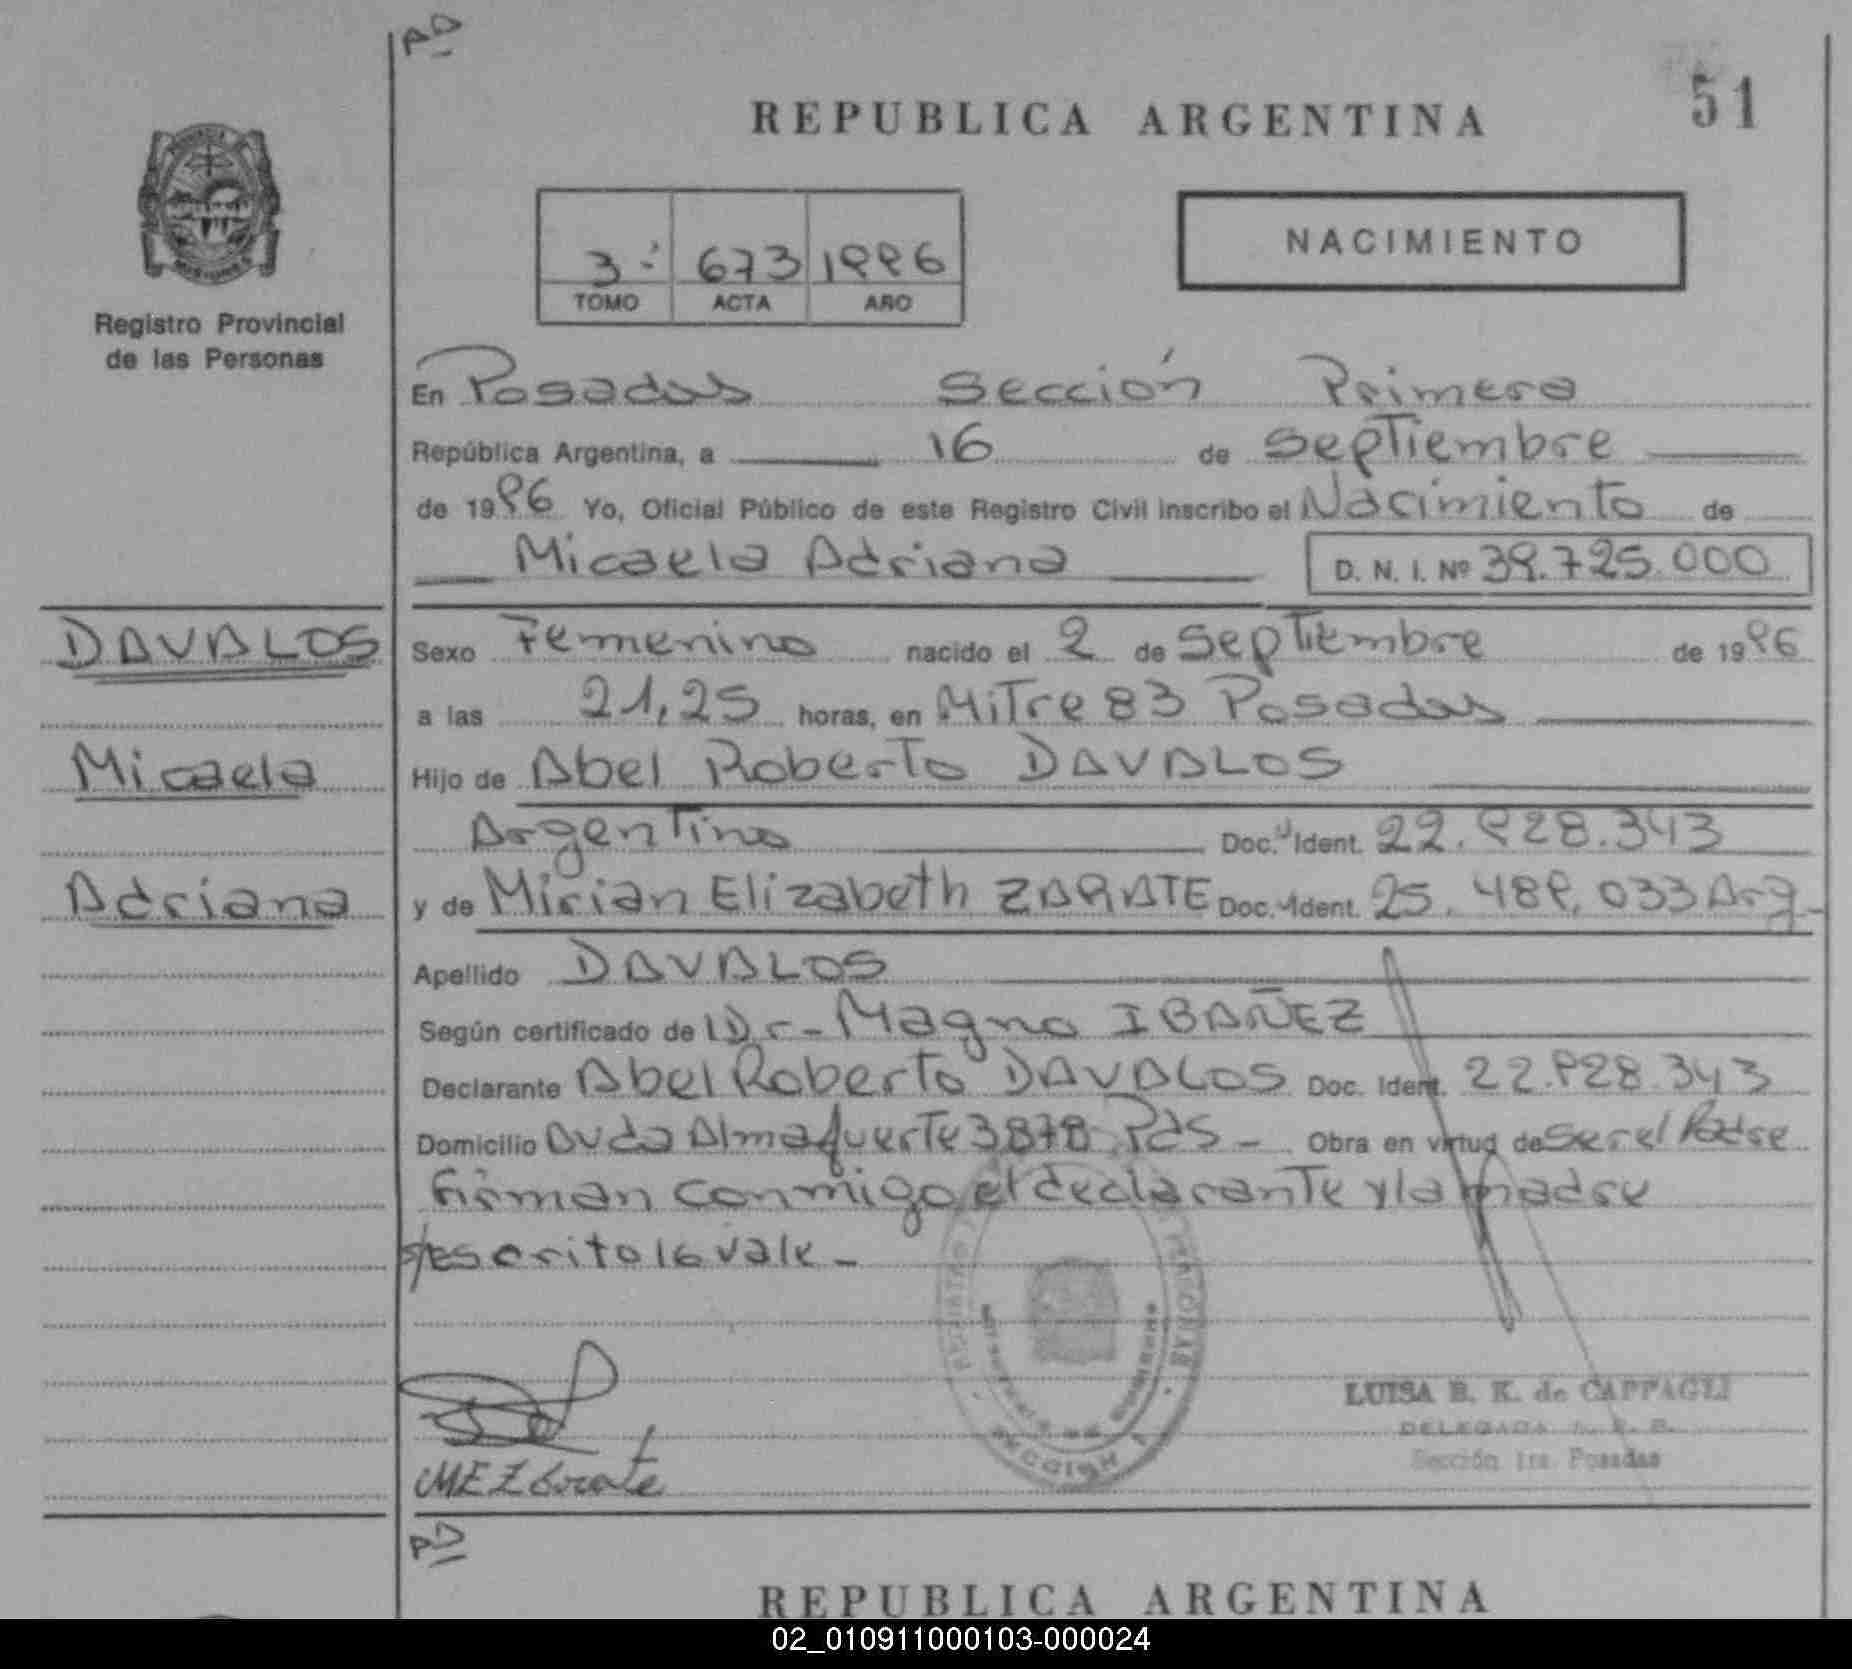 AD
REPUBLICA ARGENTINA
51
3: 673 1996
TOMO ACTA AÑO
NACIMIENTO
Registro Provincial
de las Personas
En Posadas Sección Primera
República Argentina, a 16 de Septiembre
de 1996 Yo, Oficial Público de este Registro Civil inscribo el Nacimiento de
Micaela Adriana D. N. I. Nº 39.725.000
DAVALOS
Micaela
Adriana
Sexo Femenino nacido el 2 de Septiembre de 1996
a las 21,25 horas, en Mitre 83 Posadas
Hijo de Abel Roberto DAVALOS
Argentino Doc. Ident. 22.928.343
y de Mirian Elizabeth ZARATE Doc. Ident. 25.489.033 Arg-
Apellido DAVALOS
Según certificado de Dr- Magno IBAÑEZ
Declarante Abel Roberto DAVALOS Doc. Ident. 22.928.343
Domicilio Avda Almafuerte 3878 Pdas - Obra en virtud de ser el Padre
firman conmigo el declarante y la madre
s/escrito 16 vale -
LUISA B. K. de CAPPAGLI
DELEGADA
Sección 1ra. Posadas
MEZarate
AD
REPUBLICA ARGENTINA
02_010911000103-000024